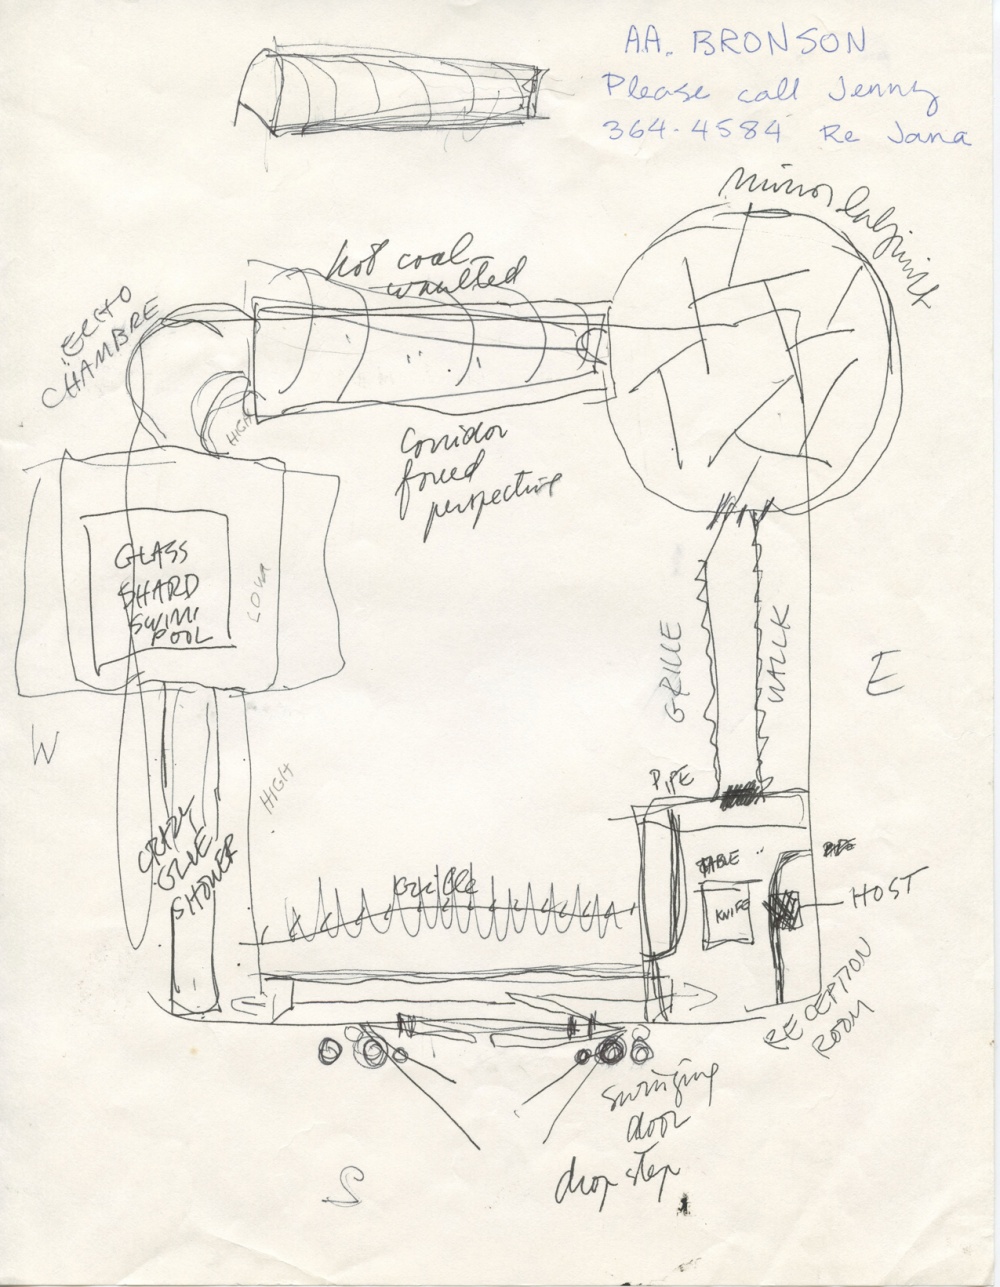 A.A. BRONSON
Please call Jenny
364-4584 Re Jana
mirror labyrinth
hot coal
vaulted
ECHO
CHAMBRE
HIGH
Corridor
forced
perspective
GLASS
SHARD
SWIM
POOL
LOW
GRILLE
WALK
E
W
HIGH
PIPE
CRAZY
GLUE
SHOWER
TABLE
KNIFE
HOST
RECEPTION
ROOM
swinging
door
drop step
S